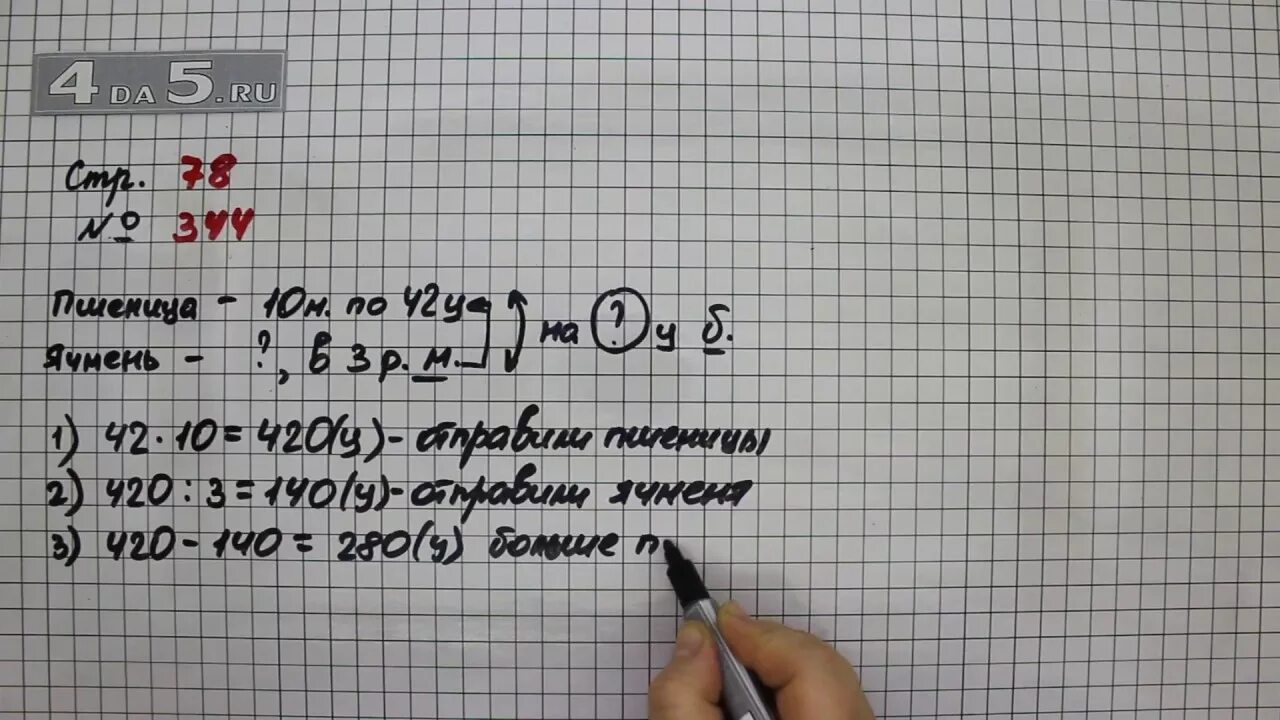 4DA5.RU
Стр. 78
№ 344
Пшеница - 10м. по 42ц
на ? ц б.
Ячмень - ?, в 3 р. м.
1) 42 · 10 = 420(ц) - отправили пшеницы
2) 420 : 3 = 140(ц) - отправили ячменя
3) 420 - 140 = 280(ц) больше п